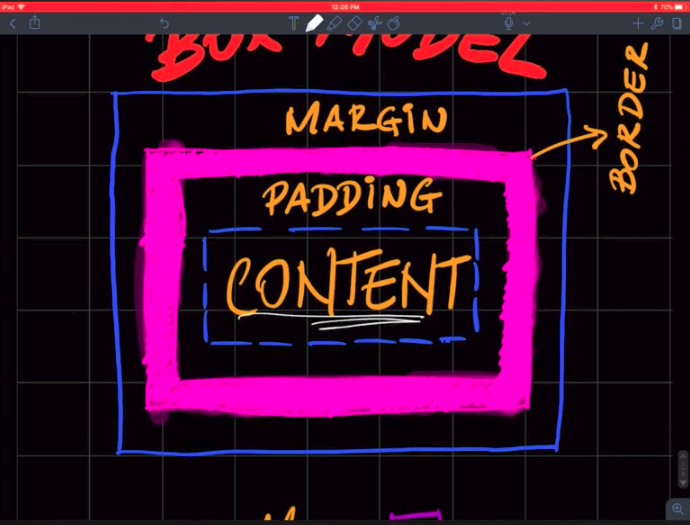 iPad
12:26 PM
70%
T
BOX MODEL
MARGIN
BORDER
PADDING
CONTENT